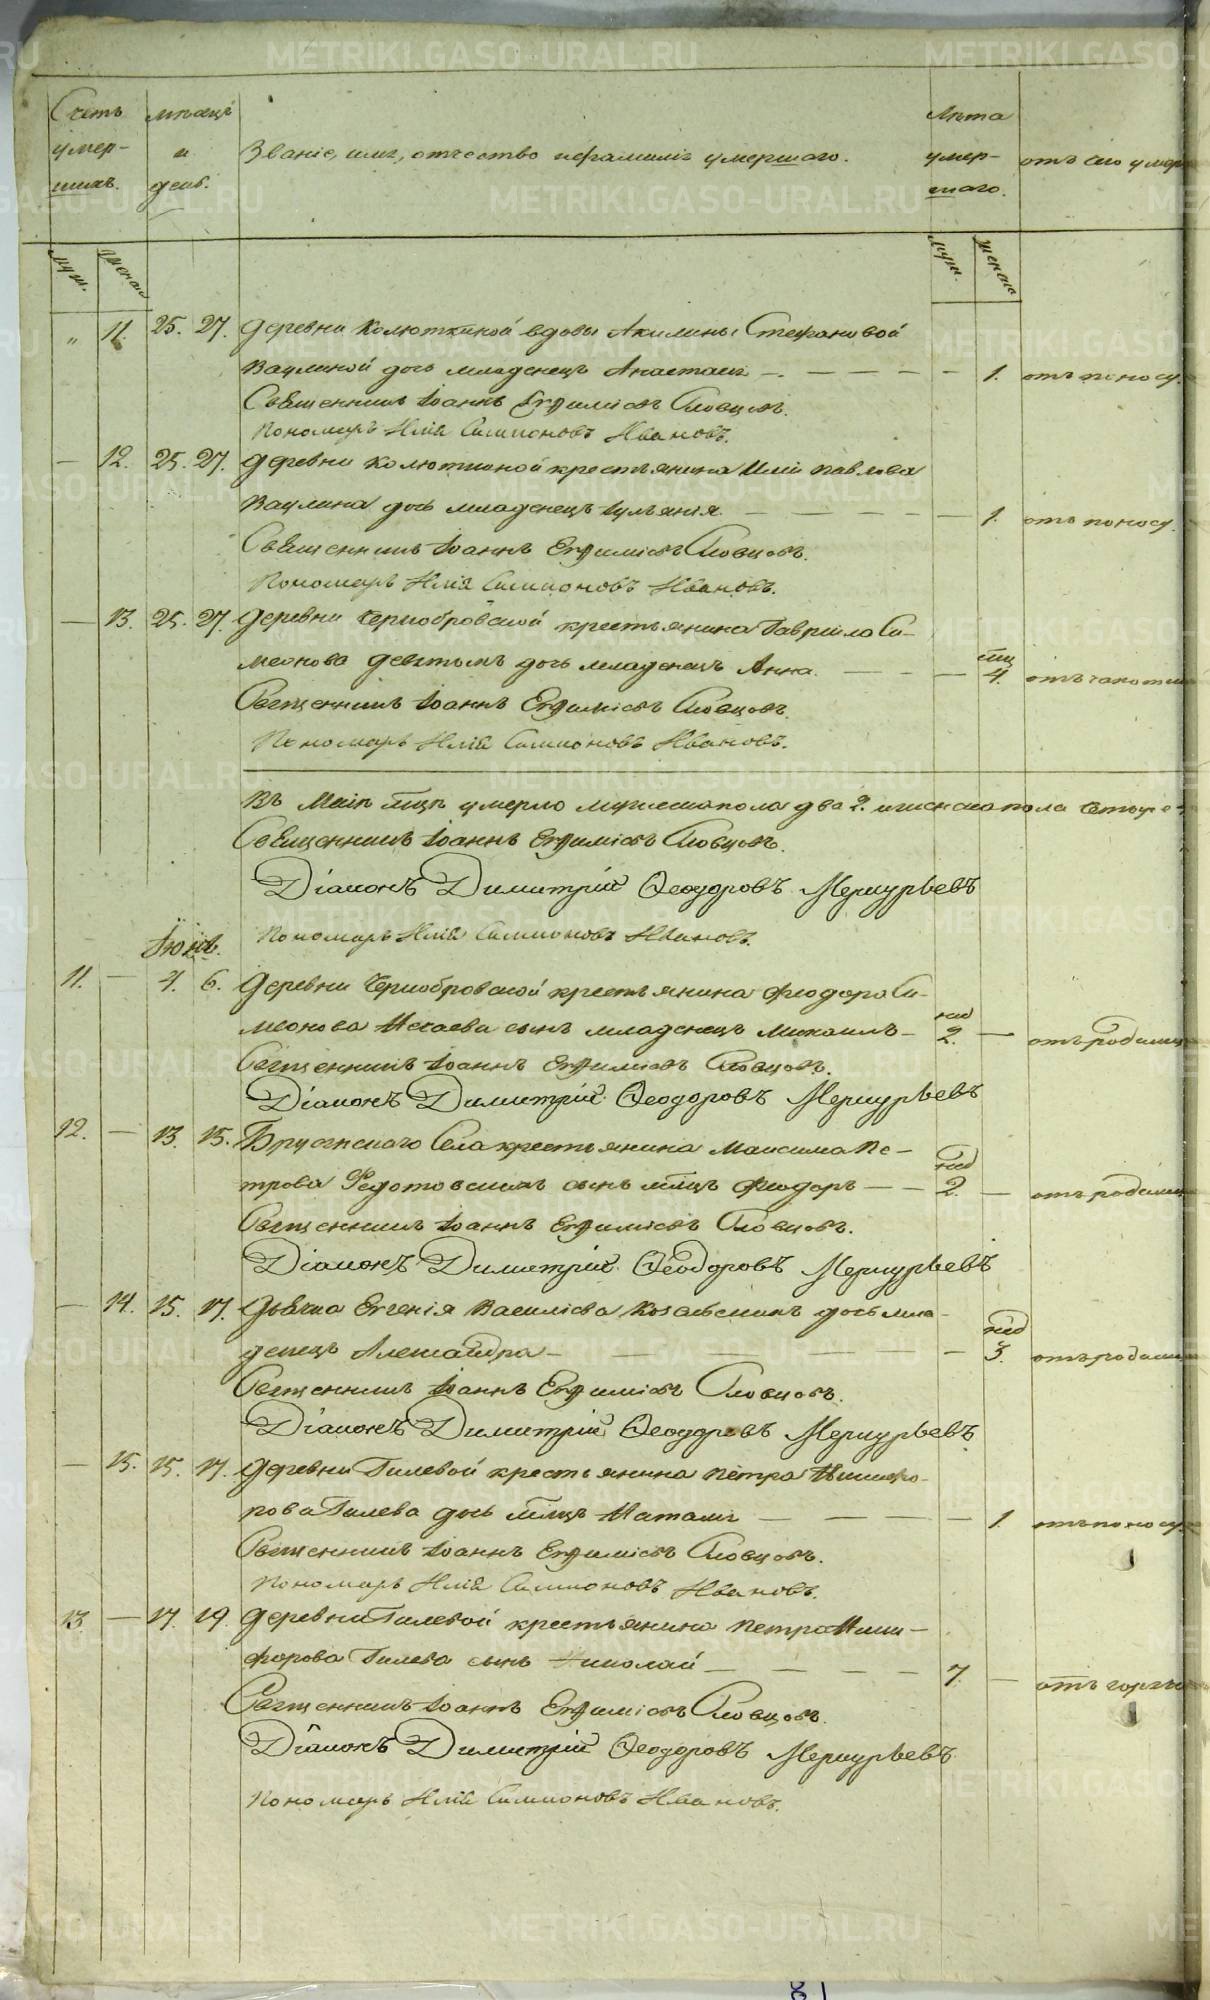 METRIKI.GASO-URAL.RU
Счетъ умер- шихъ.
мѣсяцъ и день.
Званіе, имя, отчество и фамилія умершаго.
Лѣта умер- шаго.
отъ чего умер
муж. женск.
муж. женск.
" 11. 25. 27. Деревни Колюткиной вдовы Акилины Стефановой
Ваулиной дочь младенецъ Анастасія 1. отъ поносу.
Священникъ Іоаннъ Евѳиміевъ Словцовъ.
Пономарь Илія Симионовъ Ивановъ.
— 12. 25. 27. Деревни Колюткиной крестьянина Иліи Павлова
Ваулина дочь младенецъ Іуліанія. 1. отъ поносу.
Священникъ Іоаннъ Евѳиміевъ Словцовъ.
Пономарь Илія Симионовъ Ивановъ.
— 13. 25. 27. Деревни Чернобровской крестьянина Гавріила Си-
меонова дочь младенецъ Анна. мц 4.
Священникъ Іоаннъ Евѳиміевъ Словцовъ.
Пономарь Илія Симионовъ Ивановъ.
Въ Маіѣ мцѣ умерло мужеска пола два 2. и женска пола
Священникъ Іоаннъ Евѳиміевъ Словцовъ.
Діаконъ Димитрій Ѳеодоровъ Меркурьевъ
Пономарь Илія Симионовъ Ивановъ.
Іюнь.
11. — 4. 6. Деревни Чернобровской крестьянина Ѳеодора Си-
меонова сынъ младенецъ Михаилъ — нед 2. — отъ родимц
Священникъ Іоаннъ Евѳиміевъ Словцовъ.
Діаконъ Димитрій Ѳеодоровъ Меркурьевъ
12. — 13. 15. Брусянскаго Села крестьянина Максима Пе-
трова Федотовскихъ сынъ млцъ Ѳеодоръ — нед 2. — отъ родимц
Священникъ Іоаннъ Евѳиміевъ Словцовъ.
Діаконъ Димитрій Ѳеодоровъ Меркурьевъ
— 14. 15. 17. Дьячка Евгенія Василіева дочь мла-
денецъ Александра — нед 3. отъ родими
Священникъ Іоаннъ Евѳиміевъ Словцовъ.
Діаконъ Димитрій Ѳеодоровъ Меркурьевъ.
— 15. 15. 17. Деревни Гилевой крестьянина Петра Никифо-
рова Гилева дочь млцъ Наталія 1. отъ поносу.
Священникъ Іоаннъ Евѳиміевъ Словцовъ.
Пономарь Илія Симионовъ Ивановъ.
13. — 17. 19. Деревни Гилевой крестьянина Петра Ники-
форова Гилева сынъ Николай — 7. — отъ горяч
Священникъ Іоаннъ Евѳиміевъ Словцовъ.
Діаконъ Димитрій Ѳеодоровъ Меркурьевъ.
Пономарь Илія Симионовъ Ивановъ.